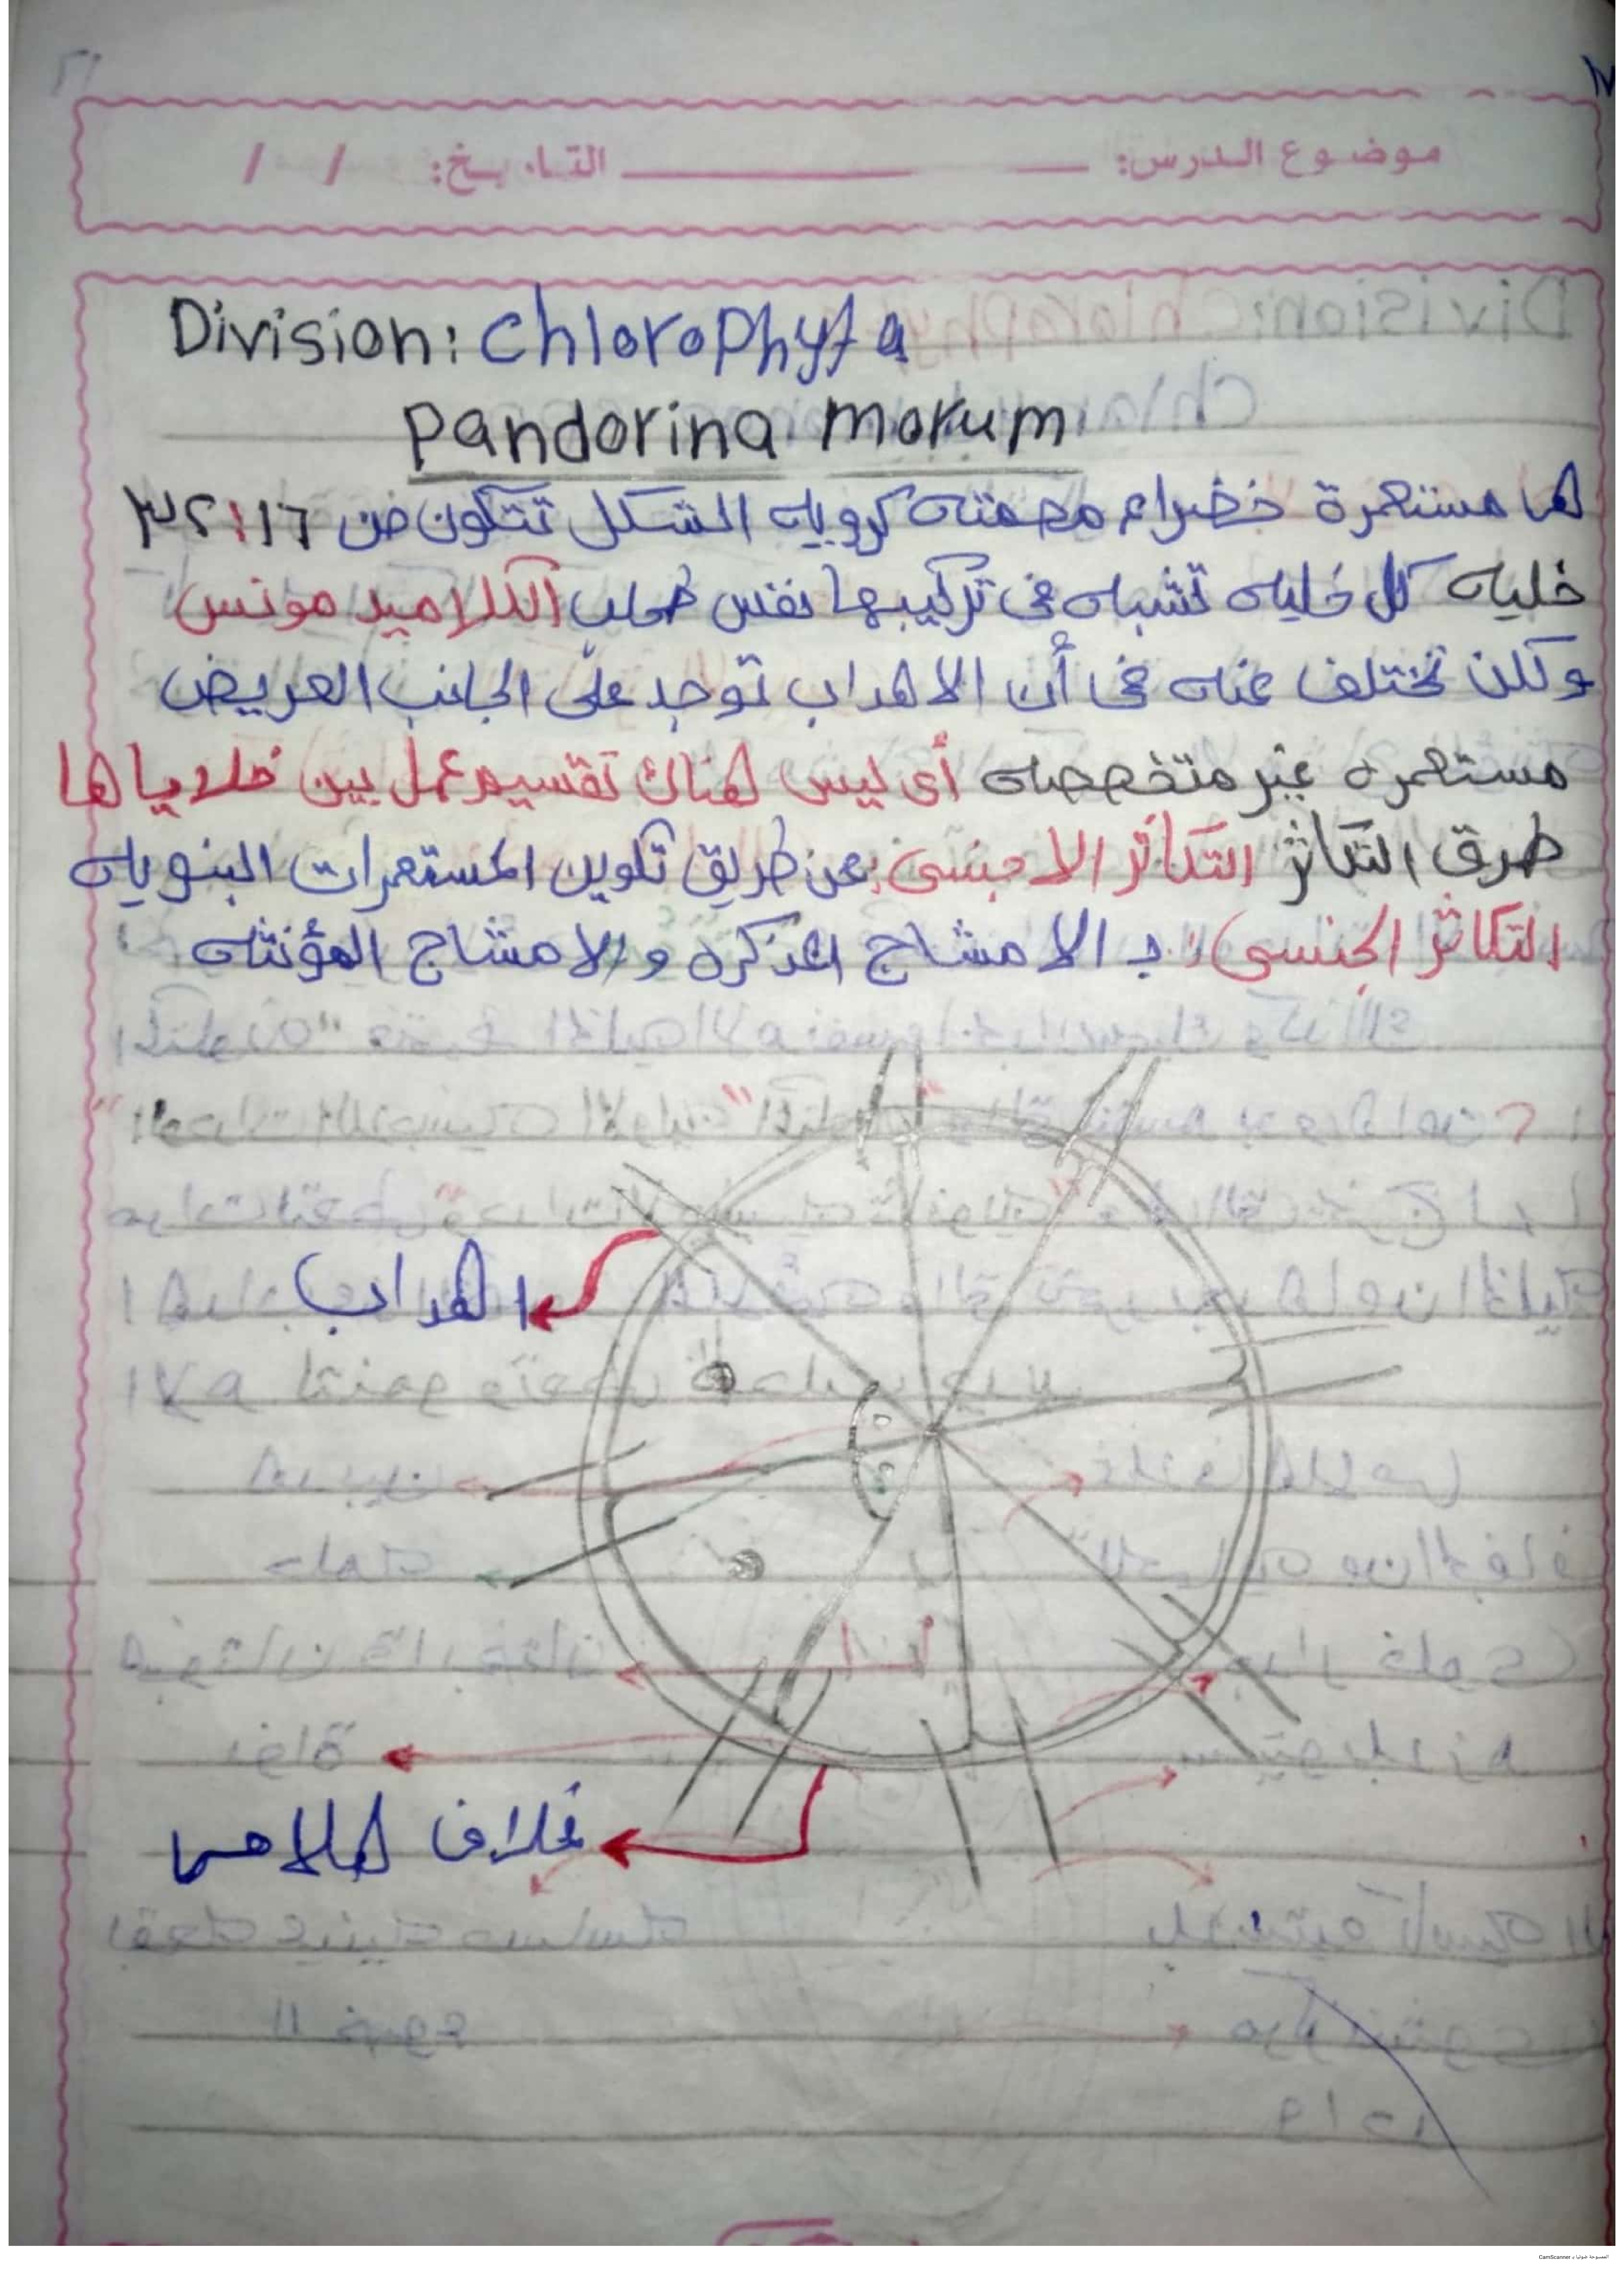 موضوع الدرس: التاريخ: / /
Division: Chlorophyta
Pandorina morum
لها مستعمرة خضراء مصمته كرويه الشكل تتكون من ١٦:٣٢
خليه كل خليه تشبه فى تركيبها نفس طحلب الكلاميد مونس
ولكن تختلف عنه فى أن الاهداب توجد على الجانب العريض
مستعمره غير متخصصه أى ليس هناك تقسيم عمل بين خلاياها
طرق التكاثر التكاثر الاجنسى: عن طريق تكوين المستعمرات البنويه
التكاثر الجنسى: بـ الامشاج المذكره والامشاج المؤنثه
اهداب
غلاف هلامى
الممسوحة ضوئيا بـ CamScanner